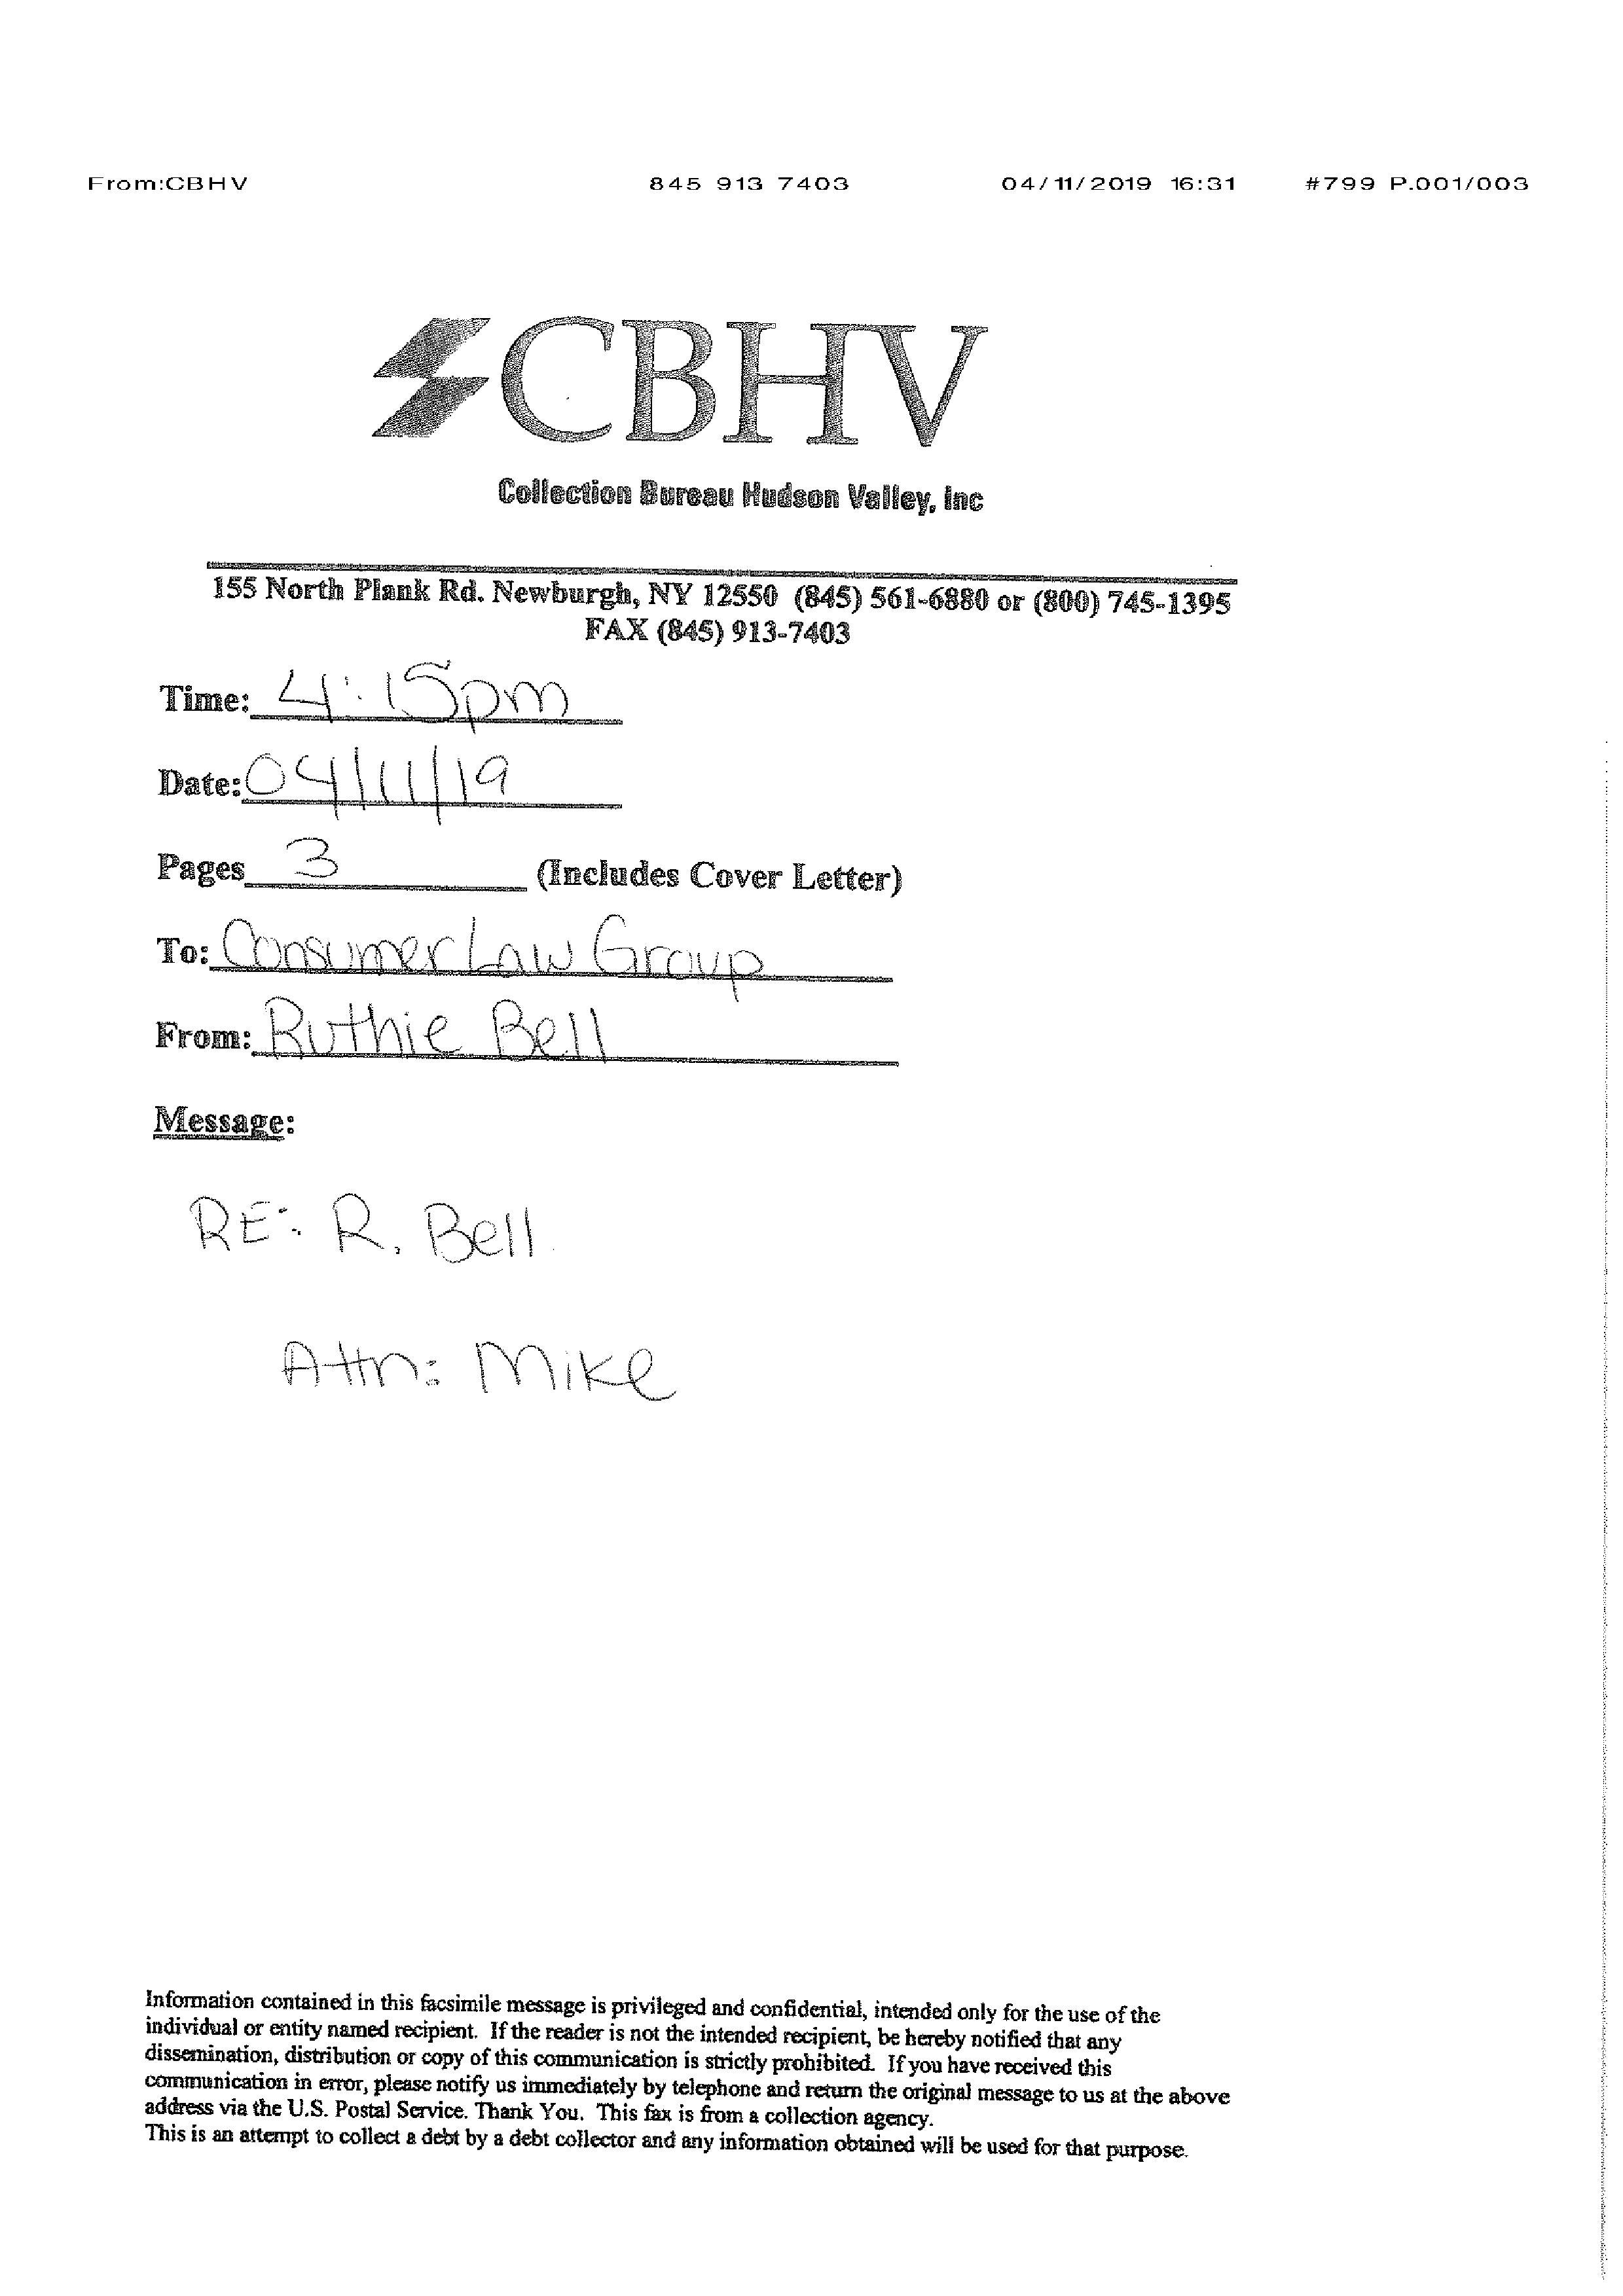 From:CBHV 845 913 7403 04/11/2019 16:31 #799 P.001/003
CBHV
Collection Bureau Hudson Valley, Inc
155 North Plank Rd. Newburgh, NY 12550 (845) 561-6880 or (800) 745-1395
FAX (845) 913-7403
Time: 4:15pm
Date: 04/11/19
Pages 3 (Includes Cover Letter)
To: Consumer Law Group
From: Ruthie Bell
Message:
RE: R. Bell
Attn: Mike
Information contained in this facsimile message is privileged and confidential, intended only for the use of the
individual or entity named recipient. If the reader is not the intended recipient, be hereby notified that any
dissemination, distribution or copy of this communication is strictly prohibited. If you have received this
communication in error, please notify us immediately by telephone and return the original message to us at the above
address via the U.S. Postal Service. Thank You. This fax is from a collection agency.
This is an attempt to collect a debt by a debt collector and any information obtained will be used for that purpose.